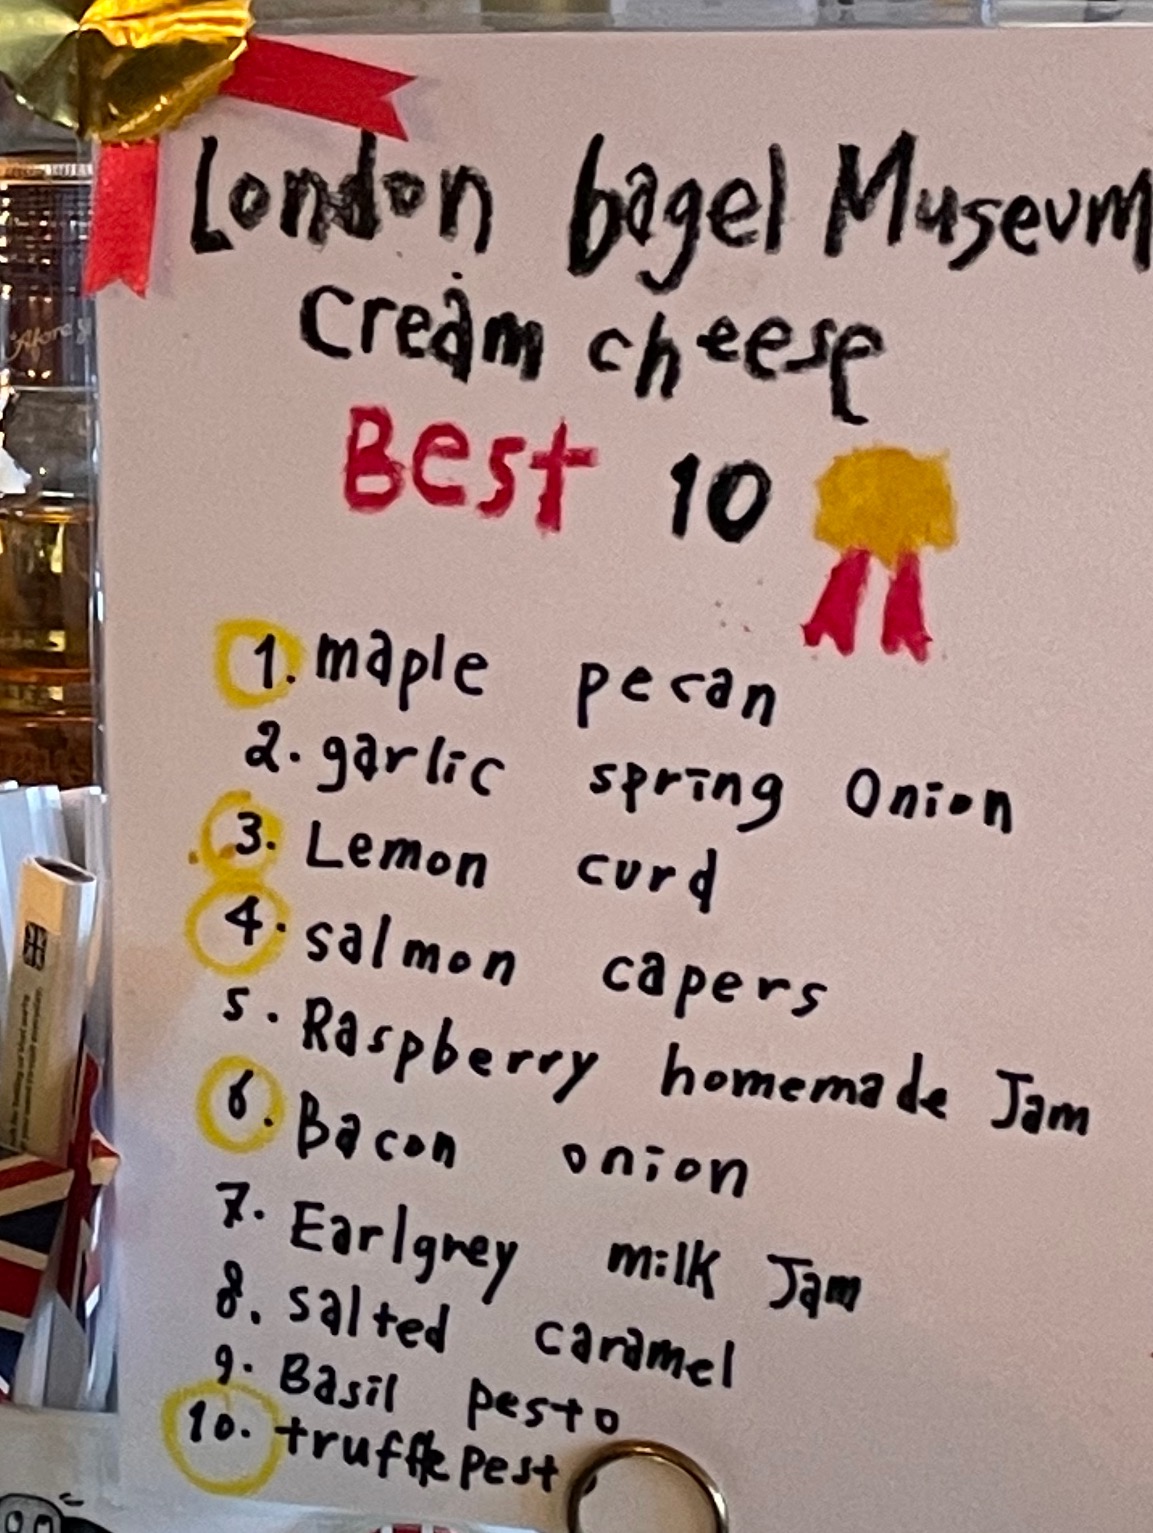 London bagel Museum
cream cheese
Best 10
1. maple pecan
2. garlic spring Onion
3. Lemon curd
4. salmon capers
5. Raspberry homemade Jam
6. Bacon onion
7. Earlgrey milk Jam
8. salted caramel
9. Basil pesto
10. truffle pest